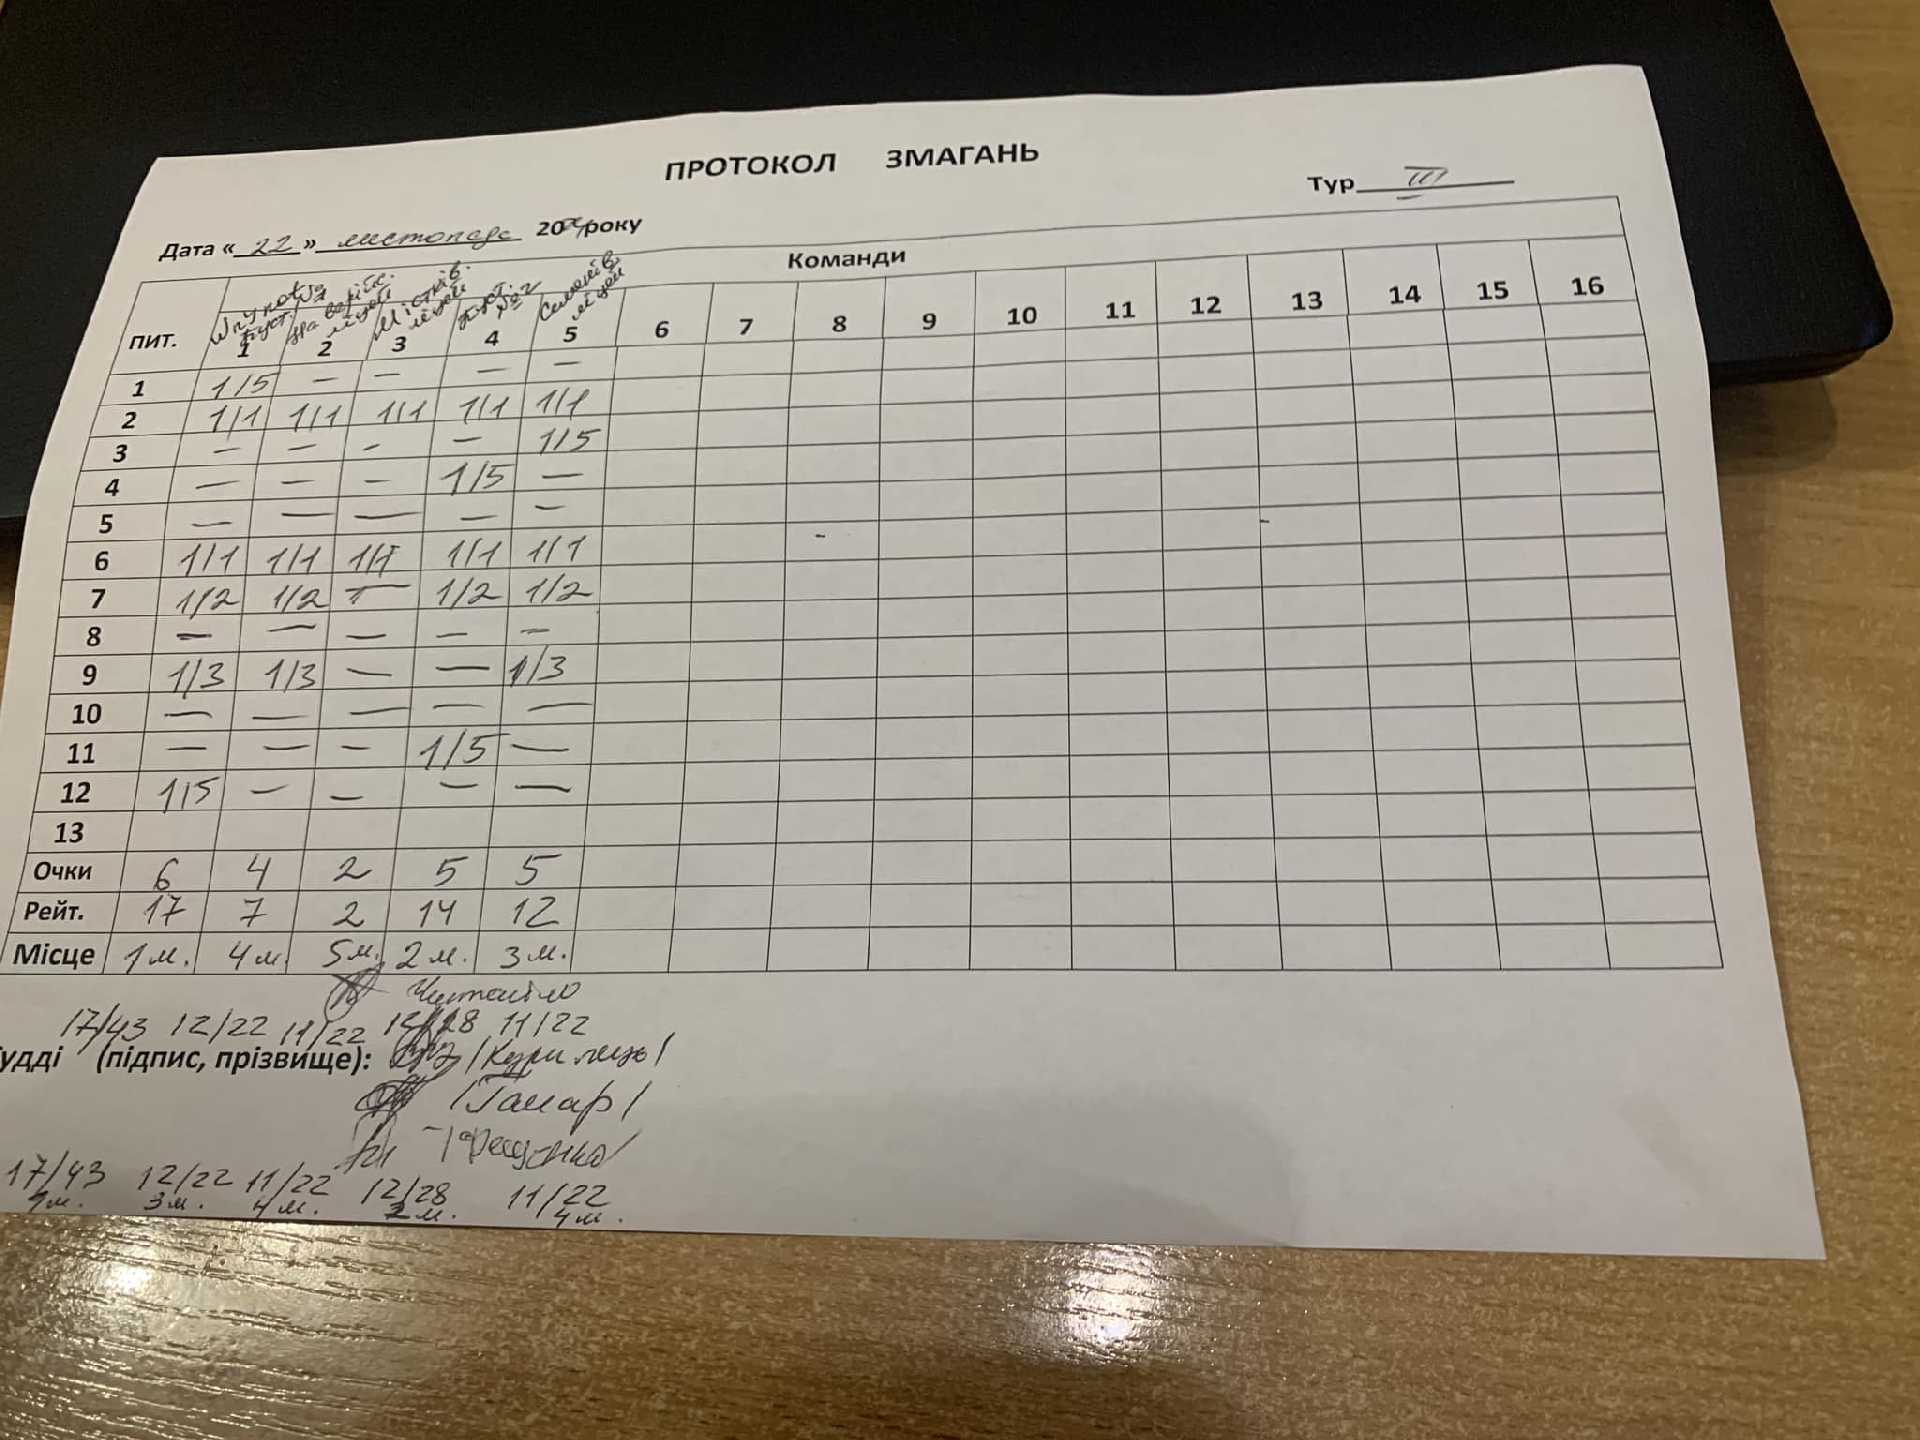 ПРОТОКОЛ ЗМАГАНЬ
Тур III
Дата « 22 » листопада 20 року
Команди
ПИТ. 1 2 3 4 5 6 7 8 9 10 11 12 13 14 15 16
ліцей ліцей №2 ліцей
1 1/5 — — — —
2 1/1 1/1 1/1 1/1 1/1
3 — — — — 1/5
4 — — — 1/5 —
5 — — — — —
6 1/1 1/1 1/1 1/1 1/1
7 1/2 1/2 — 1/2 1/2
8 — — — — —
9 1/3 1/3 — — 1/3
10 — — — — —
11 — — — 1/5 —
12 1/5 — — — —
13
Очки 6 4 2 5 5
Рейт. 17 7 2 14 12
Місце 1 м. 4 м. 5 м. 2 м. 3 м.
17/43 12/22 11/22 12/28 11/22
удді (підпис, прізвище):
17/43 12/22 11/22 12/28 11/22
1 м. 3 м. 4 м. 2 м. 4 м.